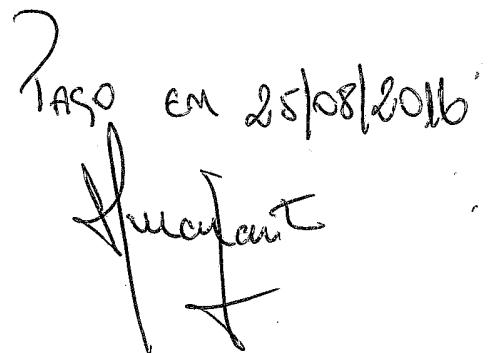 PAGO EM 25/08/2016